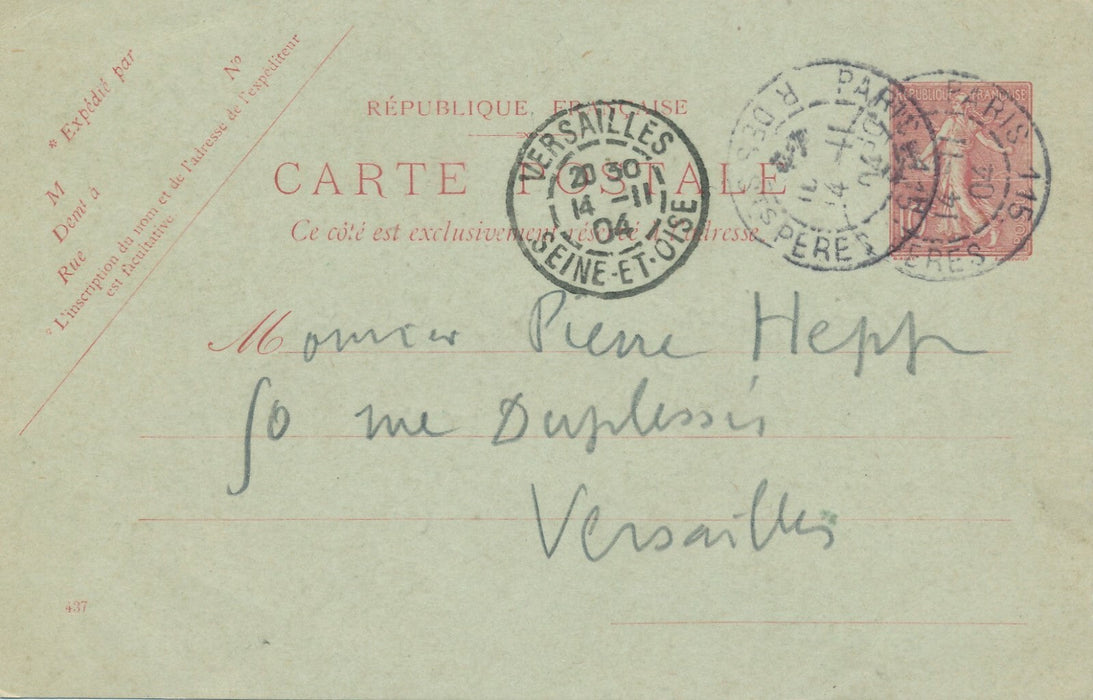 * Expédié par
M
Demt à
Rue
N°
* L'inscription du nom et de l'adresse de l'expéditeur
est facultative
RÉPUBLIQUE FRANÇAISE
CARTE POSTALE
Ce côté est exclusivement réservé à l'adresse
VERSAILLES
20 30
14 -11
04
SEINE-ET-OISE
PARIS
R DES STS PERES
14 11
04
RÉPUBLIQUE FRANÇAISE
10
PARIS 115
14 11
04
PERES
Monsieur Pierre Hepp
50 rue Duplessis
Versailles
437